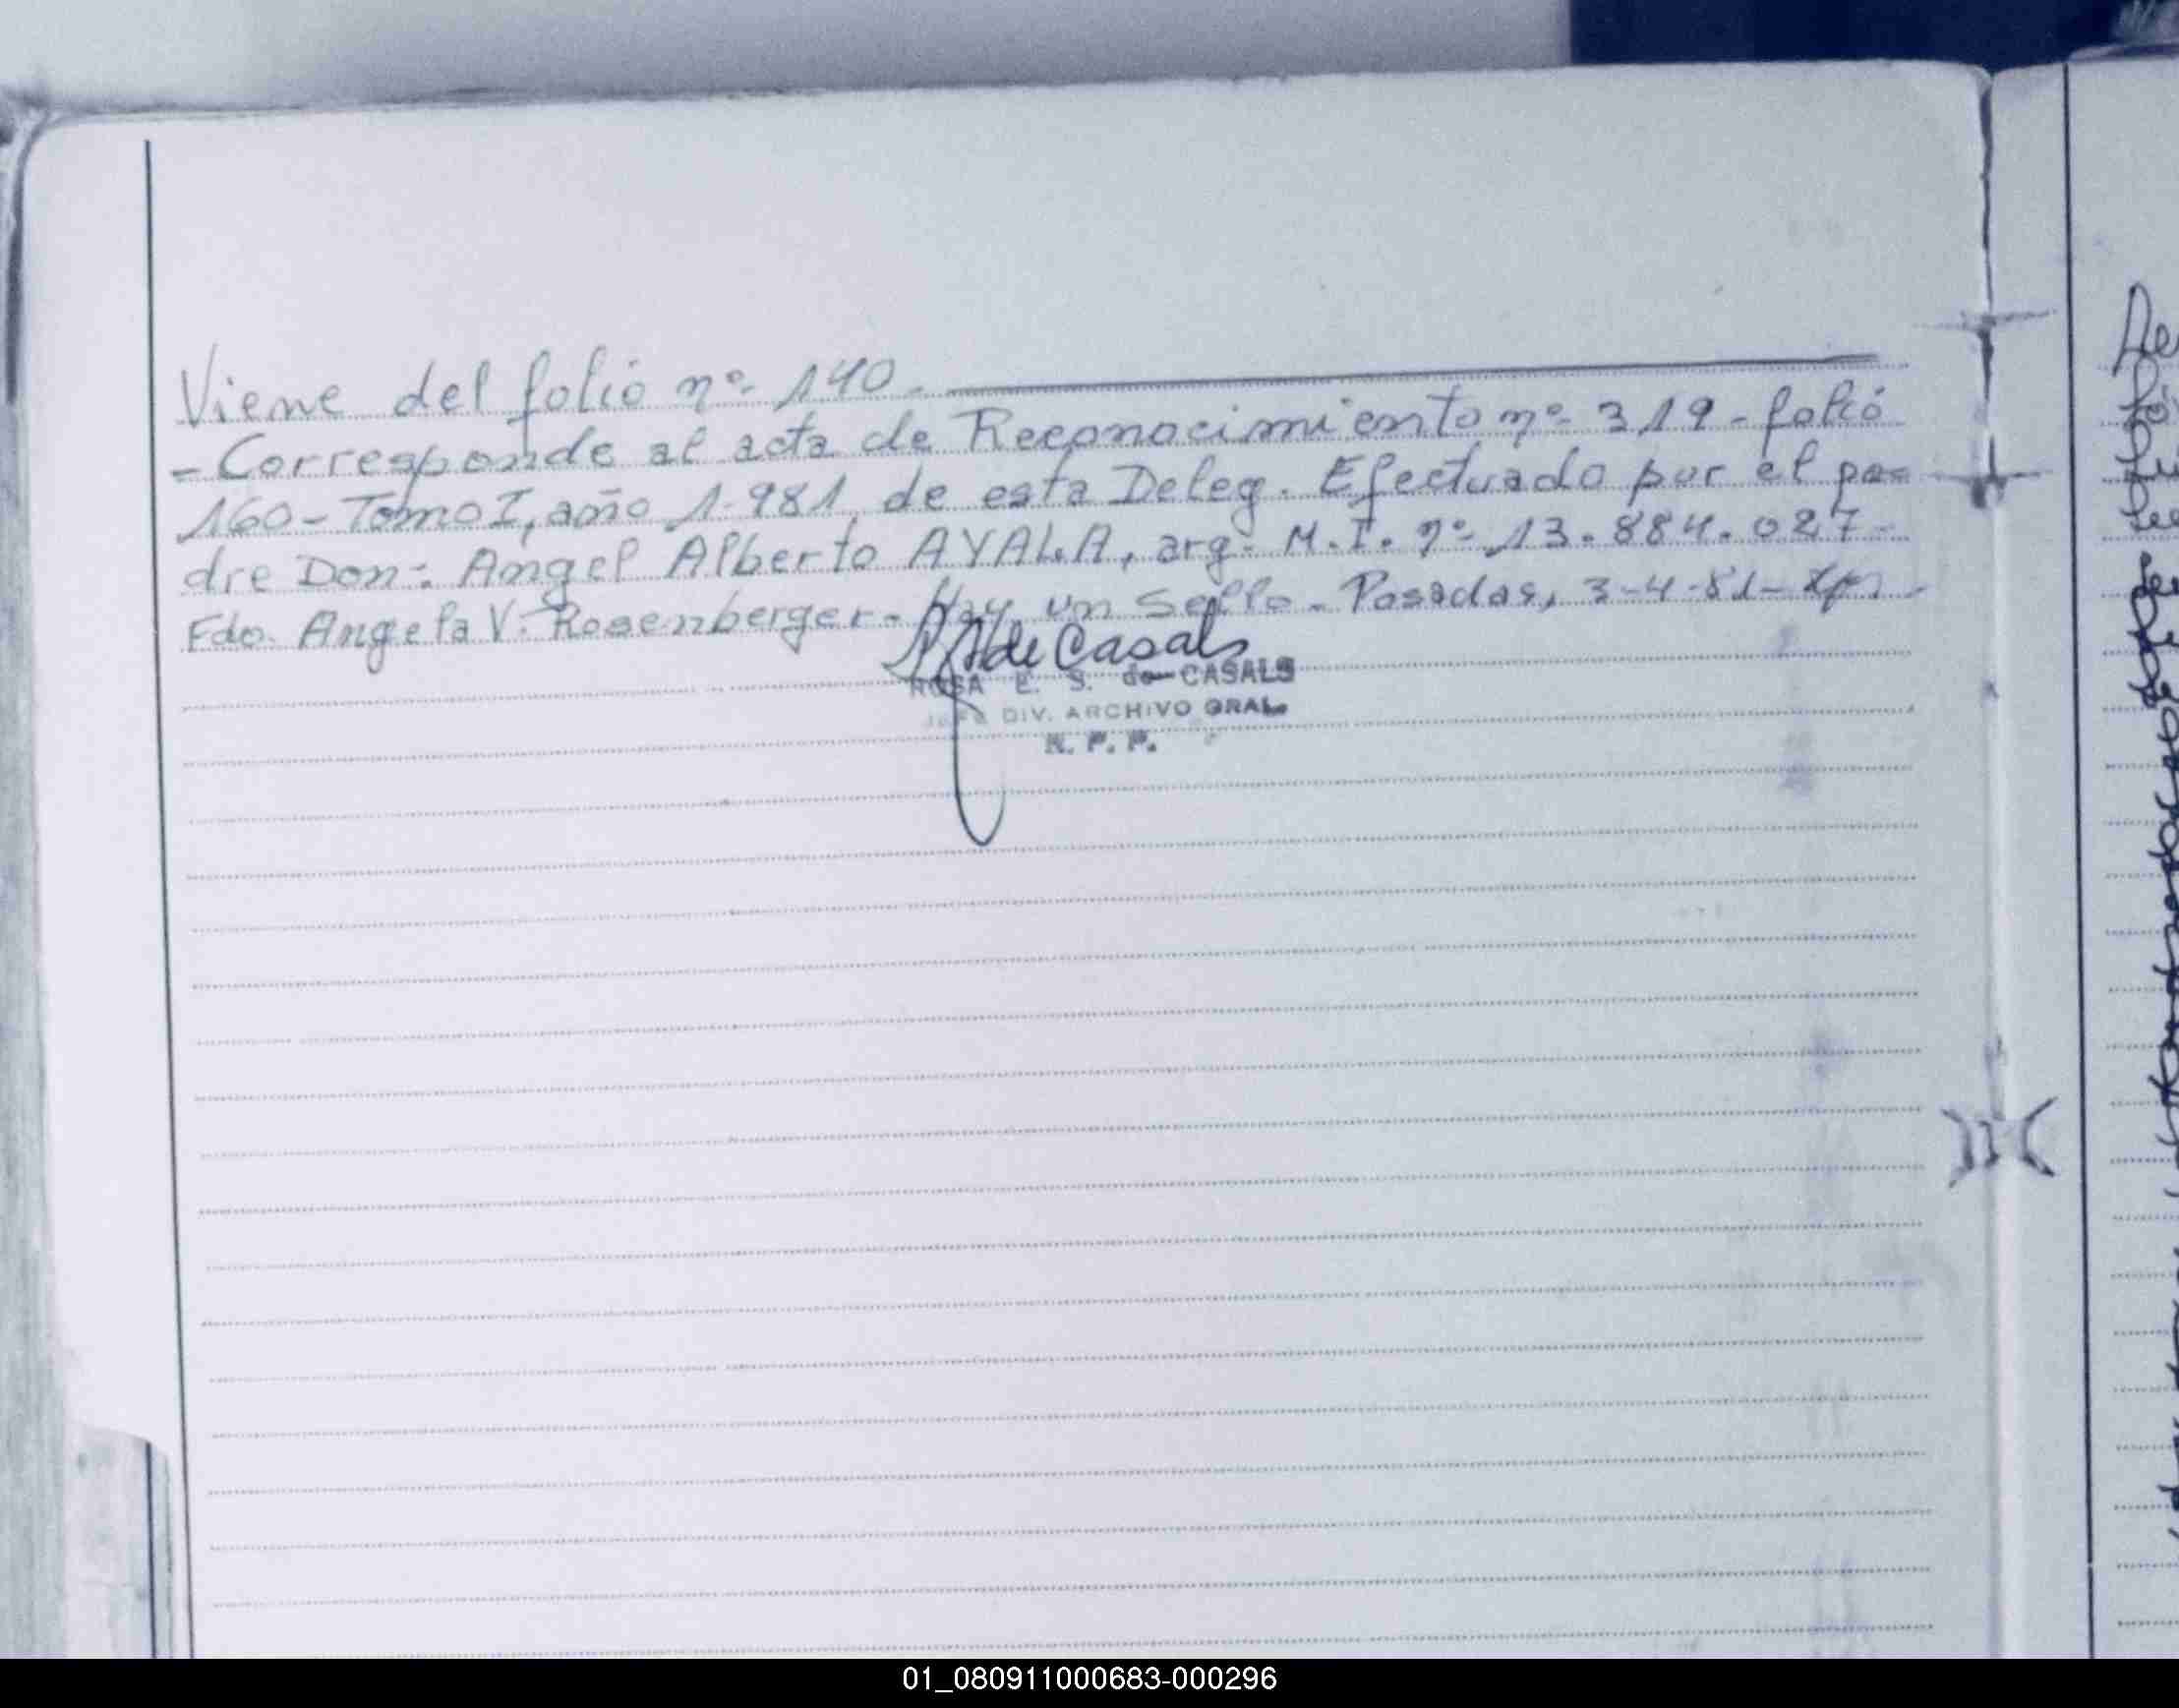 Viene del folio nº 140.
- Corresponde al acta de Reconocimiento nº 319 - folio
160 - Tomo I, año 1.981, de esta Deleg. Efectuado por el pa=
dre Don: Angel Alberto AYALA, arg. M.I. nº 13.884.027-
Fdo. Angela V. Rosenberger - Hay un Sello. Posadas, 3-4-81-
de Casals
ROSA E. S. de CASALS
JEFE DIV. ARCHIVO GRAL.
R. P. P.
01_080911000683-000296